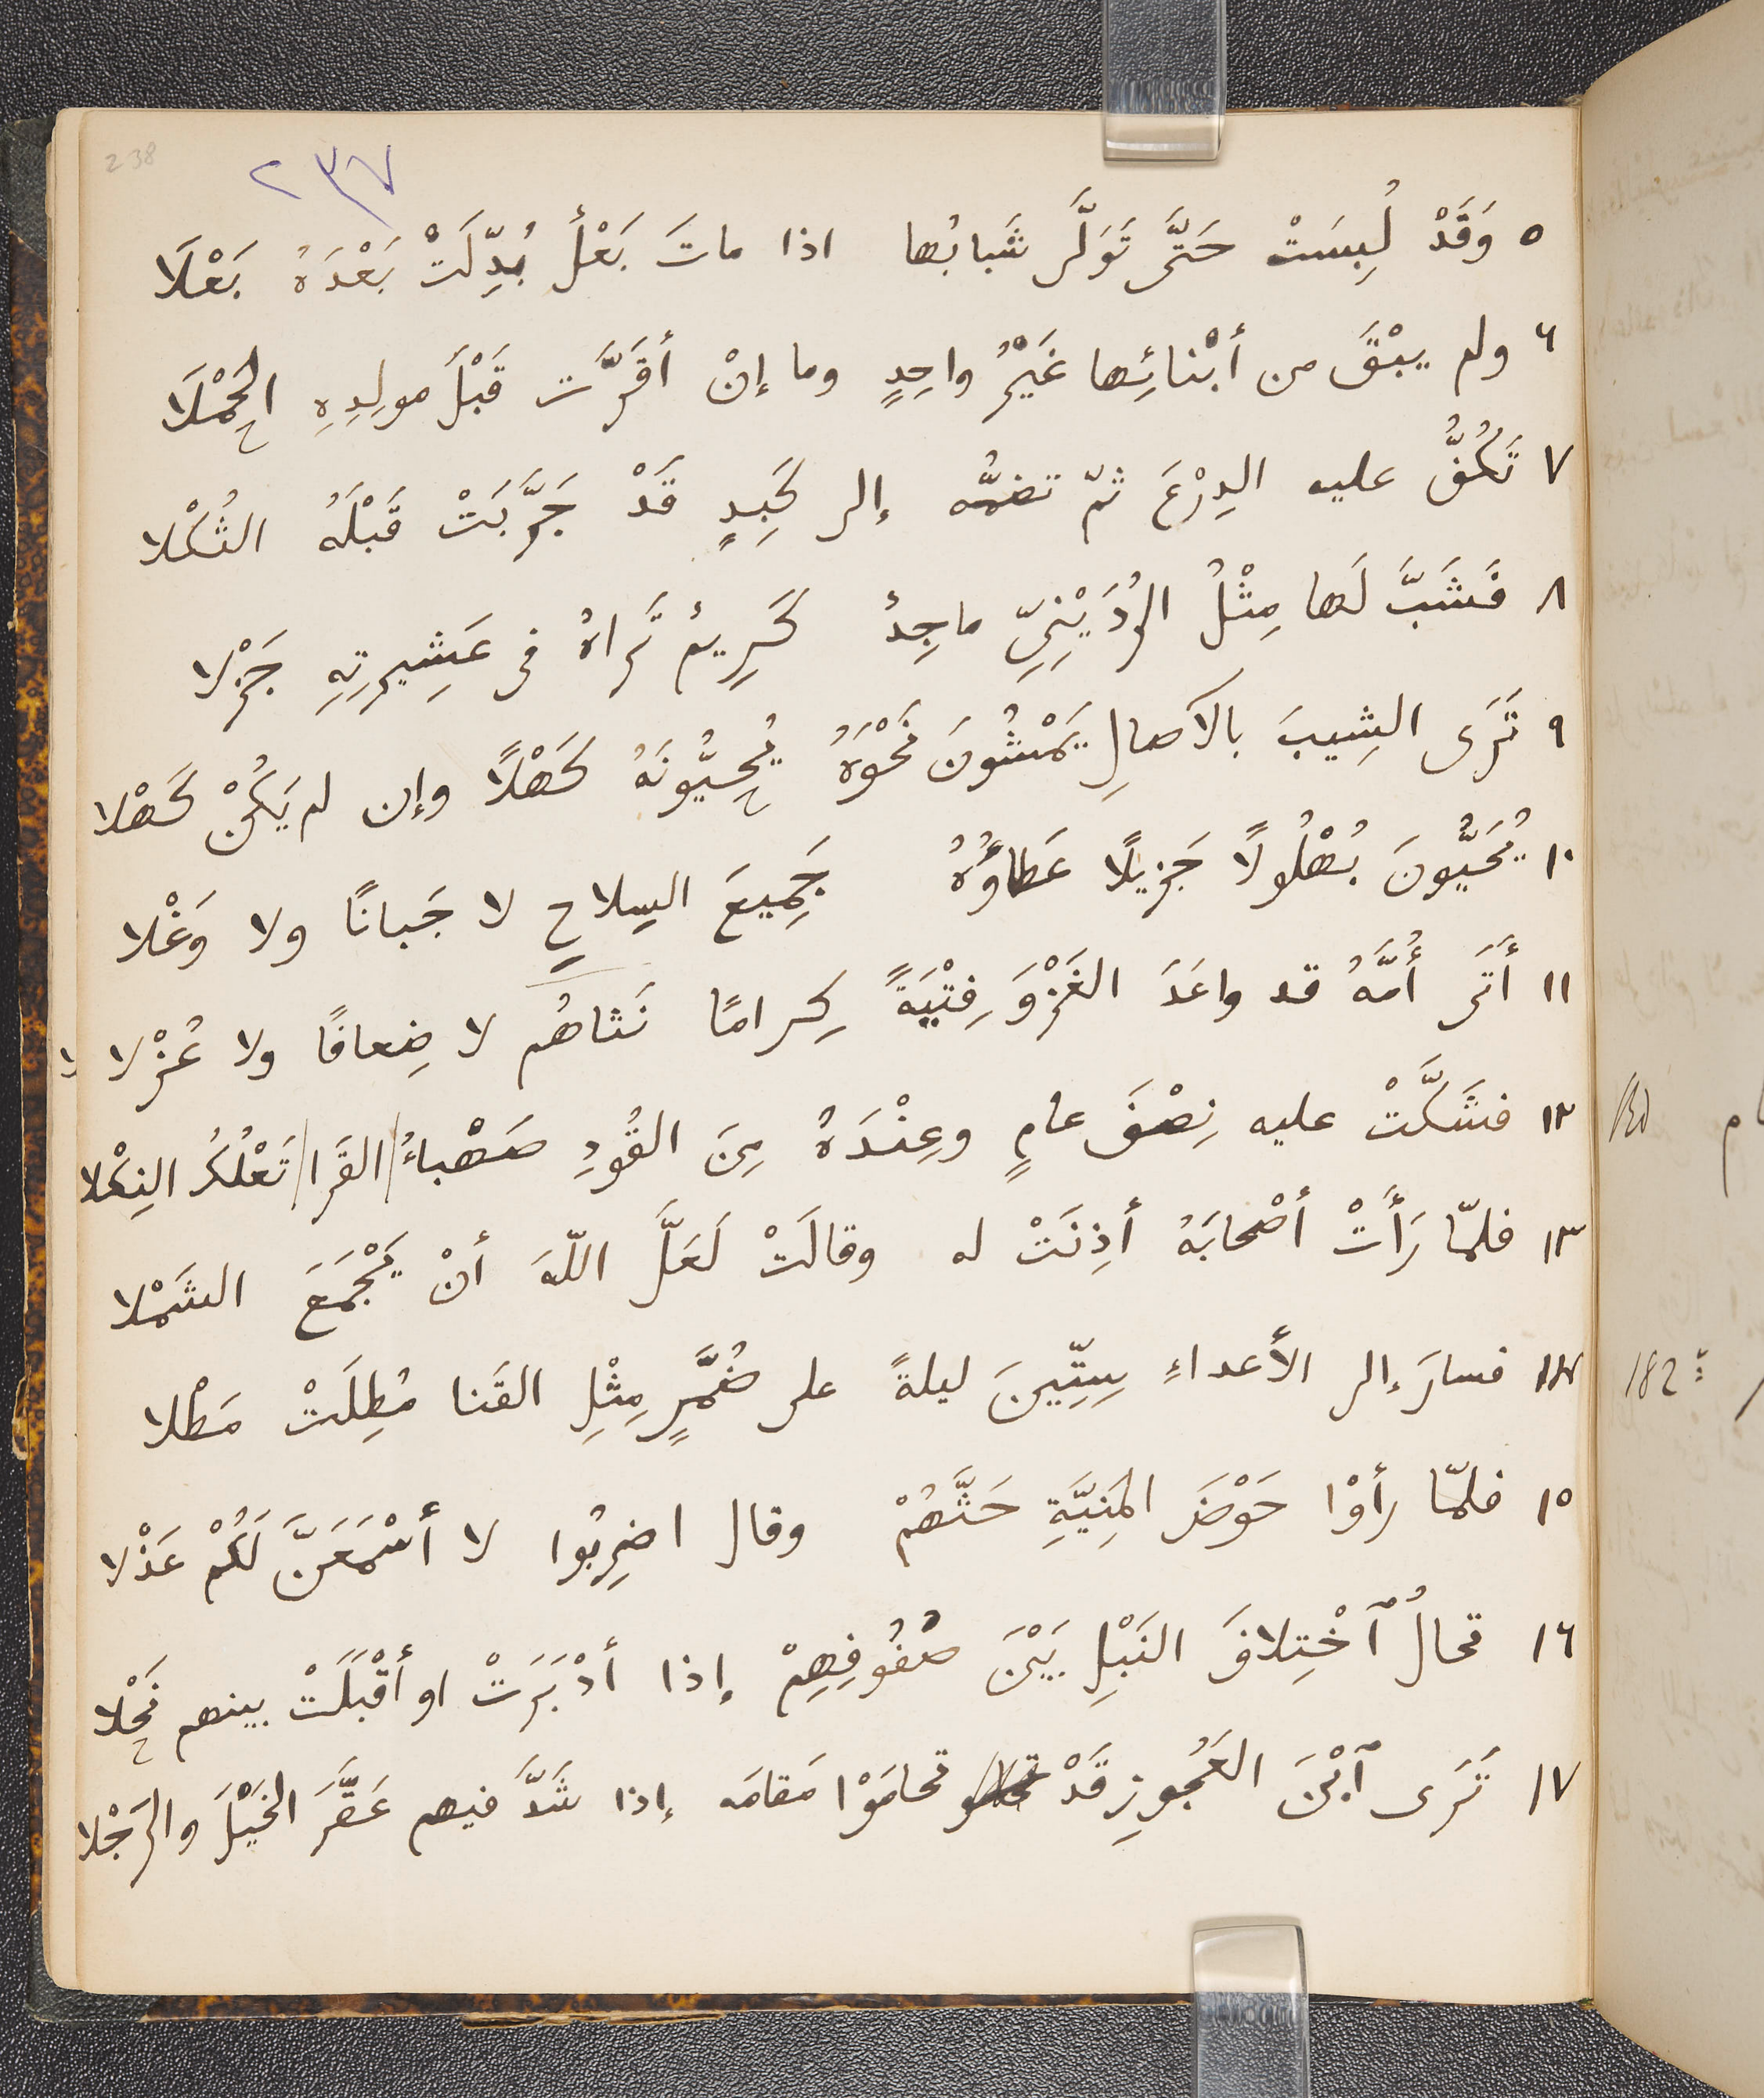 238
٢٣٧
٥ وَقَدْ لُبِسَتْ حَتَّى تَوَلَّى شَبابُها اذا ماتَ بَعْلٌ بُدِّلَتْ بَعْدَهُ بَعْلَا
٦ ولم يبْقَ من أبْنائِها غَيْرُ واحِدٍ وما إنْ أقَرَّت قَبْلَ مولِدِهِ الحَمْلَا
٧ تَكُفُّ عليه الدِرْعَ ثمّ تضمُّه إلى كَبِدٍ قَدْ جَرَّبَتْ قَبْلَهُ الثُكْلا
٨ فَشَبَّ لَها مِثْلُ الرُدَيْنِيِّ ماجِدٌ كَرِيمٌ تَراهُ فى عَشِيرتِهِ جَزْلا
٩ تَرَى الشِيبَ بالآصالِ يَمْشُونَ نَحْوَهُ يُحِيُّونَهُ كَهْلًا وإن لم يَكُنْ كَهْلا
١٠ يُحَيُّونَ بُهْلُولًا جَزِيلًا عَطاؤُهُ جَمِيعَ السِلاحِ لا جَبانًا ولا وَغْلا
١١ أتَى أُمَّهُ قد واعَدَ الغَزْوَ فِتْيَةً كِرامًا نَثاهُم لا ضِعافًا ولا عُزْلا
١٢ فشَكَّتْ عليه نِصْفَ عامٍ وعِنْدَهُ مِنَ القُودِ صَهْباءُ القَرا تَعْلُكُ النِكْلا
١٣ فلمّا رَأَتْ أصْحابَهُ أذِنَتْ له وقالَتْ لَعَلَّ اللّهَ أنْ يَجْمَعَ الشَمْلا
١٤ فسارَ إلى الأعداءِ سِتِّينَ ليلةً على ضُمَّرٍ مِثْلِ القَنا مُطِلَتْ مَطْلا
١٥ فلمّا رأوْا حَوْضَ المَنِيَّةِ حَثَّهُمْ وقال اضرِبُوا لا أسْمَعَنَّ لَكُمْ عَذْلا
١٦ تخالُ ٱخْتِلافَ النَبْلِ بَيْنَ صُفُوفِهِمْ إذا أدْبَرَتْ او أقْبَلَتْ بينهم نَحْلا
١٧ تَرَى ٱبْنَ العَجُوزِ قَدْ تحامَوْا مَقامَه إذا شَدَّ فيهم عَقَّرَ الخَيْلَ والرَجْلا
182